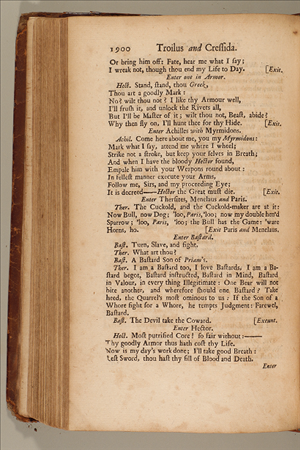 1900 Troilus and Cressida.
Or bring him off: Fate, hear me what I say;
I wreak not, though thou end my Life to Day. [Exit.
Enter one in Armor.
Hect. Stand, stand, thou Greek,
Thou art a goodly Mark:
No? wilt thou not? I like thy Armour well,
I'll frush it, and unlock the Rivets all,
But I'll be Master of it; wilt thou not, Beast, abide?
Why then fly on, I'll hunt thee for thy Hide. [Exit.
Enter Achilles with Myrmidons.
Achil. Come here about me, you my Myrmidons:
Mark what I say, attend me where I wheel;
Strike not a stroke, but keep your selves in Breath;
And when I have the bloody Hector found,
Empale him with your Weapons round about:
In fellest manner execute your Arms,
Follow me, Sirs, and my proceeding Eye;
It is decreed——Hector the Great must die. [Exit.
Enter Thersites, Menelaus and Paris.
Ther. The Cuckold, and the Cuckold-maker are at it:
Now Bull, now Dog; 'loo, Paris, 'loo; now my double hen'd
Sparrow; 'loo, Paris, 'loo; the Bull has the Game: 'ware
Horns, ho. [Exit Paris and Menelaus.
Enter Bastard.
Bast. Turn, Slave, and fight.
Ther. What art thou?
Bast. A Bastard Son of Priam's.
Ther. I am a Bastard too, I love Bastards. I am a Ba-
stard begot, Bastard instructed, Bastard in Mind, Bastard
in Valour, in every thing Illegitimate: One Bear will not
bite another, and wherefore should one Bastard? Take
heed, the Quarrel's most ominous to us: If the Son of a
Whore fight for a Whore, he tempts Judgment: Farewel,
Bastard.
Bast. The Devil take thee Coward. [Exeunt.
Enter Hector.
Hect. Most putrified Core! so fair without:——
Thy goodly Armor thus hath cost thy Life.
Now is my day's work done; I'll take good Breath:
Rest Sword, thou hast thy fill of Blood and Death.
Enter